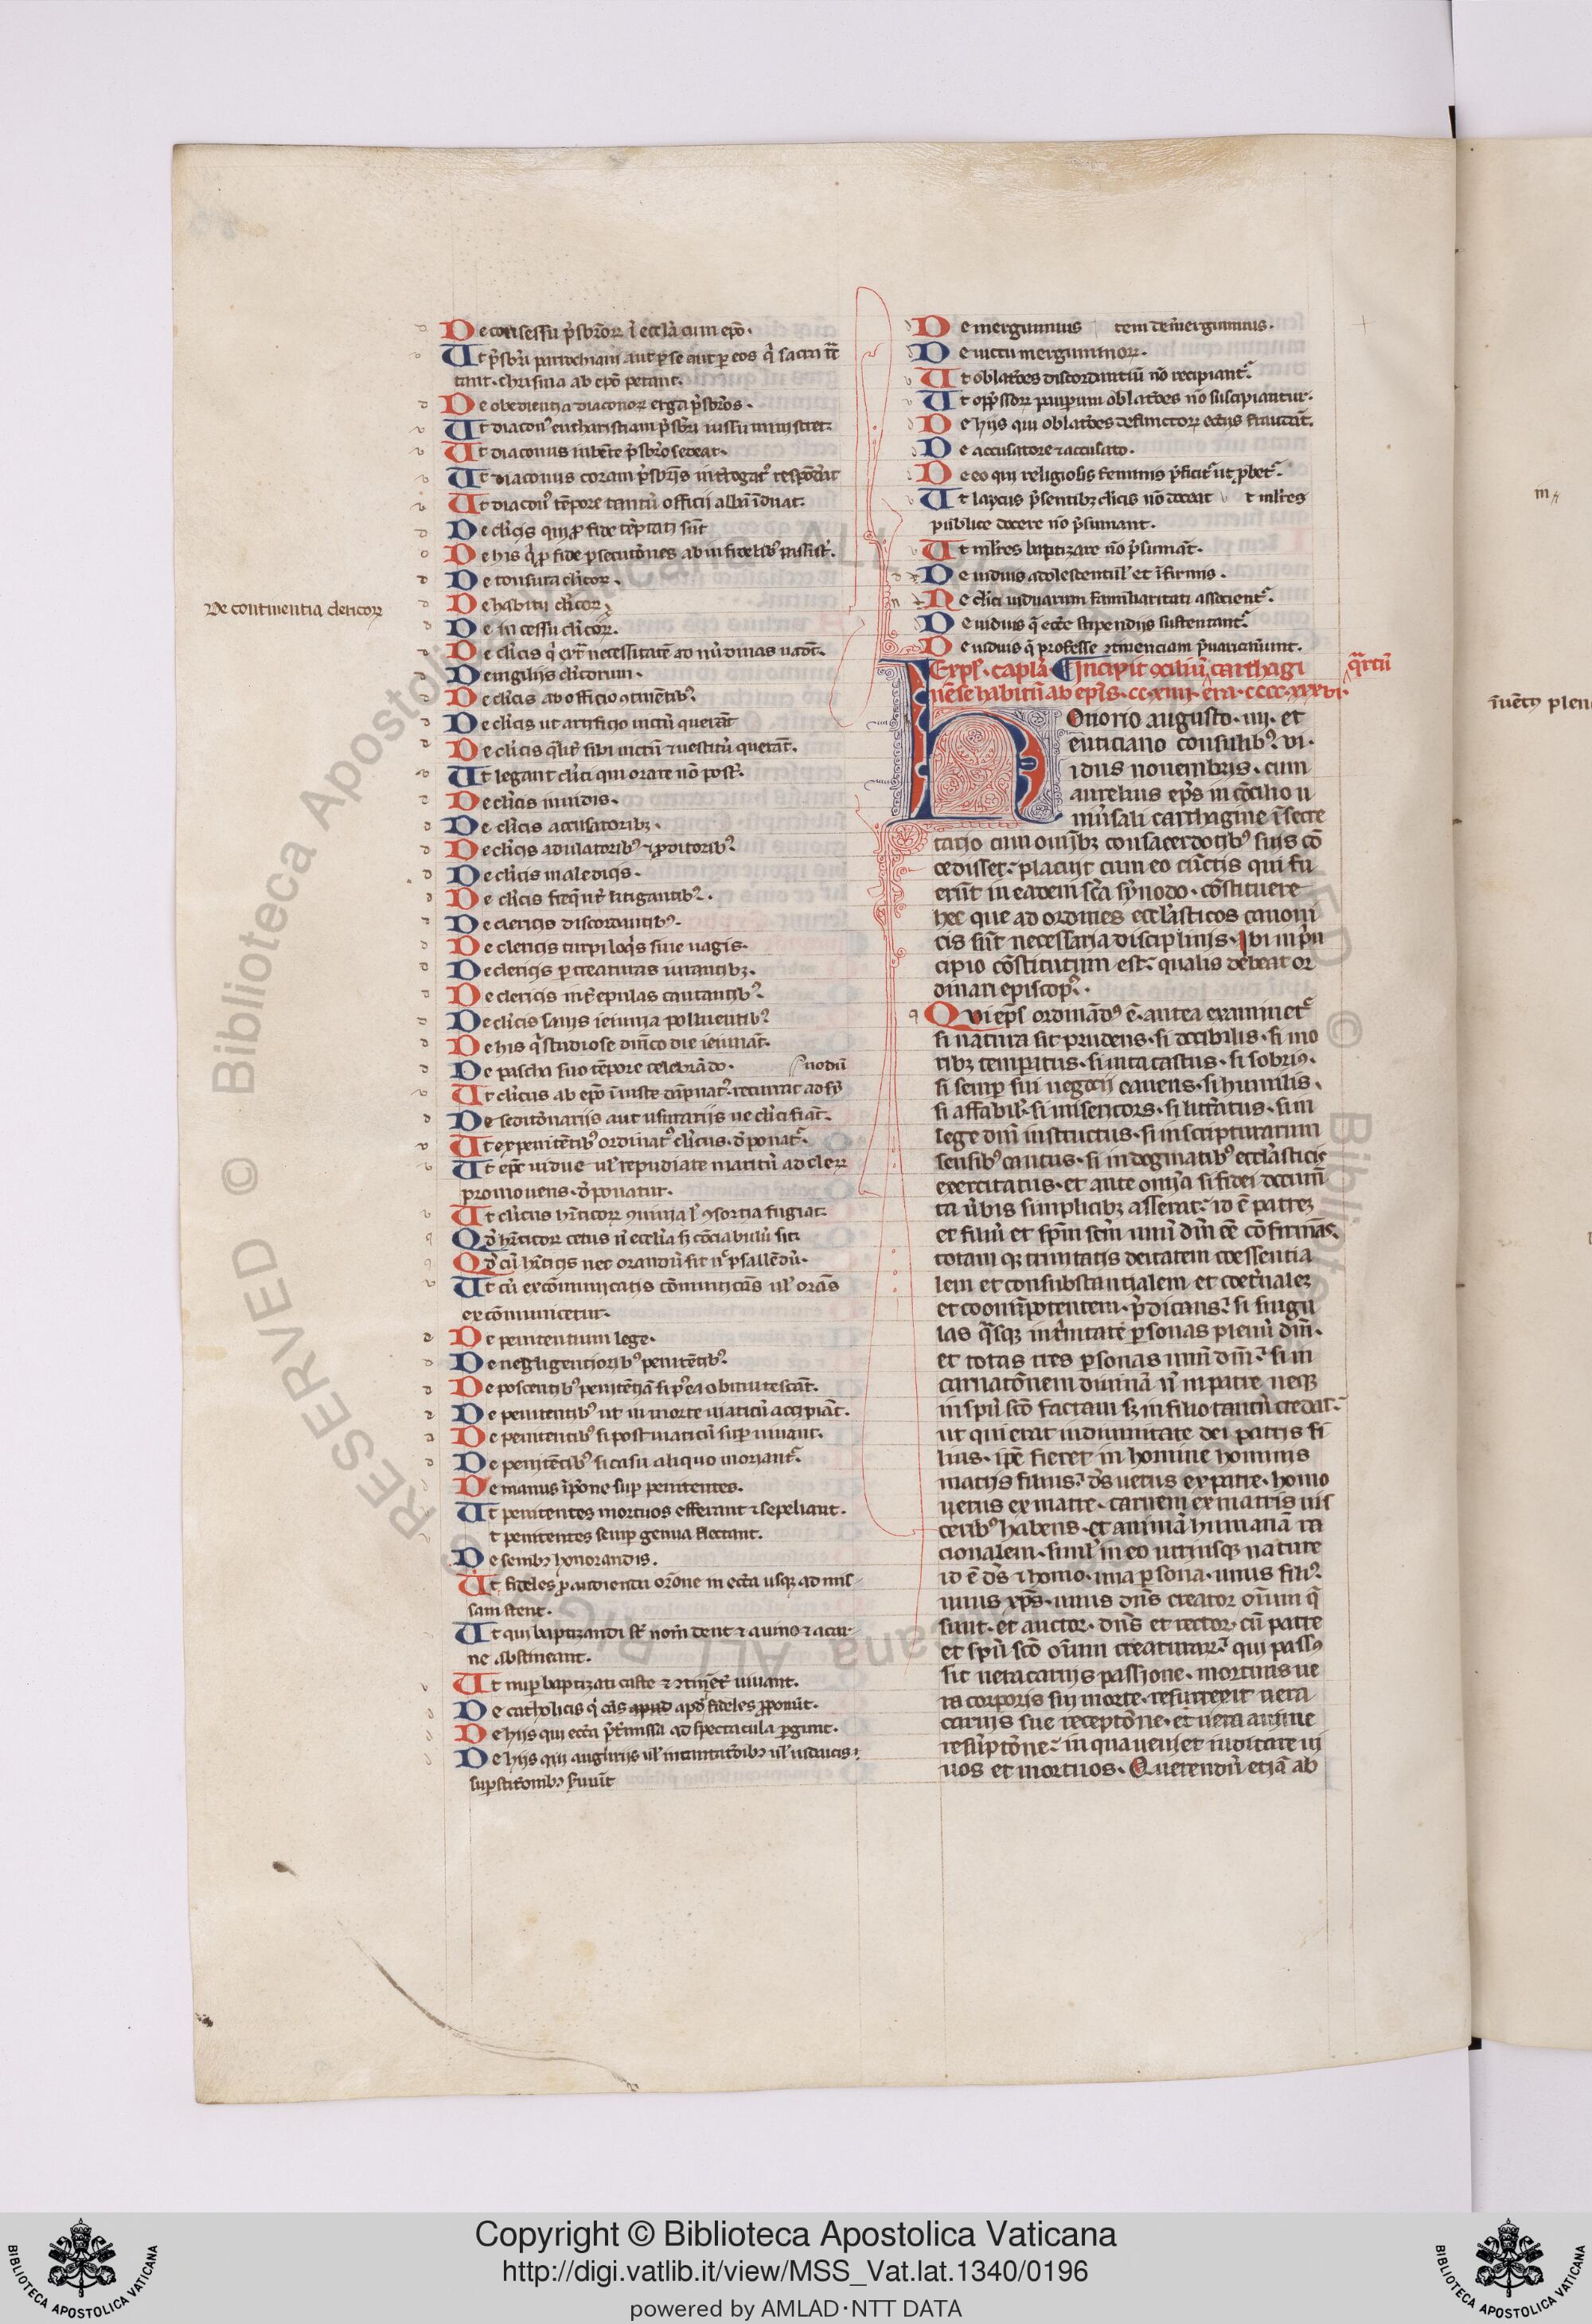 De consessu p̄sbr̄oꝝ ī eccl̄a cum ep̄o.
Ut p̄sbr̄i parrochiani aut ꝑ se aut ꝑ eos q̄ sacrī tr̄
tant. chrisma ab ep̄o petant.
De obedientia diaconoꝝ erga p̄sbr̄os.
Ut diaconꝰ eucharistiam p̄sbr̄i iussu ministret.
Ut diaconus iubēte p̄sbr̄o sedeat.
Ut diaconus coram p̄sbr̄is int̄rogatꝰ respōdeat
Ut diaconꝰ tēpore tantū officii albā īduat.
De cl̄icis qui ꝓ fide tēptati sūt
De his q̄ ꝓ fide ꝑsecutōnes ab infidelibꝰ
De tonsura cl̄icoꝝ.
De habitu cl̄icoꝝ.
De continentia clericoꝝ
De incessu cl̄icoꝝ.
De cl̄icis q̄ ext̄ necessitatē ad nūdinas uadūt.
De uigiliis cl̄icorum.
De cl̄icis ab officio
De cl̄icis ut artificio uictū querāt
De cl̄icis sibi uictū ⁊ uestitū querāt.
Ut legant cl̄ici qui orare nō possūt.
De cl̄icis inuidis.
De cl̄icis accusatoribꝫ.
De cl̄icis adulatoribꝰ ⁊ ꝓditoribꝰ.
De cl̄icis maledicis.
De cl̄icis litigantibꝰ.
De clericis discordantibꝰ.
De clericis turpiloq̄s siue uagis.
De clericis ꝑ creaturas iurantibꝫ.
De clericis int̄ epulas cantantibꝰ.
De cl̄icis sanis ieiunia soluentibꝰ
De his q̄ studiose dn̄ico die ieiunāt.
De pascha suo tēpore celebrādo.
Ut cl̄icus ab ep̄o īiuste dāpnatꝰ. recurrat ad sy
nodū
De seditōnariis aut usurariis ne cl̄ici fiāt.
Ut ex penitētibꝰ ordinatꝰ cl̄icus. d̄ponatꝰ.
Ut ep̄c uidue ul̄ repudiate maritū ad cleꝝ
promouens. d̄ponatur.
Ut cl̄icus hr̄eticoꝝ ꝯuiuia l̄ ꝯsortia fugiat.
Qd̄ hr̄eticoꝝ cetus n̄ eccl̄ia sꝫ cōciabulū sit
Qd̄ cū hr̄eticis nec orandū sit n̄ psallēdū.
Ut cū excōmunicatis cōmunicās ul̄ orās
excōmunicetur.
De penitentium lege.
De negligentioribꝰ penitētibꝰ.
De poscentibꝰ penitētiā si obmutescāt.
De penitentibꝰ ut in morte uiaticū accipiāt.
De penitentibꝰ si post uiaticū suꝑuiuant.
De penitētibꝰ si casu aliquo moriant̄.
De manus īpōne suꝑ penitentes.
Ut penitentes mortuos efferant ⁊ sepeliant.
t penitentes semꝑ genua flectant.
De senibꝫ honorandis.
Ut fideles ꝓ audienda or̄one in ecc̄a usqꝫ ad mis-
sam stent.
Ut qui baptizandi st̄ nom̄ dent ⁊ a uino ⁊ a car-
ne abstineant.
Ut nuꝑ baptizati caste ⁊ uiuant.
De catholicis q̄ cās apud apd̄ fideles ꝓponūt.
De hiis qui ecc̄a p̄t̄missa ad spectacula ꝑgunt.
De hiis qui auguriis ul̄ incantatōibꝫ ul̄ iudaicis
suꝑstitionibꝫ
De energuminis tem de energuminis.
De uictu energuminoꝝ.
Ut oblatōes discordantiū nō recipiant̄.
Ut opp̄ssoꝝ pauꝑum oblatōes nō suscipiantur.
De hiis qui oblatōes defunctoꝝ fraudāt.
De accusatore ⁊ accusato.
De eo qui religiosis feminis p̄ficit̄ ut ꝓbet̄.
Ut laycus p̄sentibꝫ cl̄icis nō doceat t ml̄ieres
publice docere nō p̄sumant.
Ut ml̄ieres baptizare nō p̄sumāt.
De uiduis adolescentul̄ et īfirmis.
Ne cl̄ici uiduarum familiaritati associent̄.
De uiduis q̄ ecc̄e stipendiis sustentant̄.
De uiduis q̄ professe ꝯtinenciam p̄uaricauerunt.
Expl̄. capl̄a. Incipit ꝯciliū carthagi
q̄rtū
nēse habitū ab ep̄is. cc. xiiii. era. cccc. xxxvi.
Honorio augusto. iiii. et
enticiano consulibꝰ. vi.
idus nouembris. cum
aurelius ep̄s in cōcilio u
niu̅sali carthagine ī secre
tario cum omībꝫ consacerdotibꝰ suis cō
cedisset. placuit cum eo cūctis qui fu
erūt in eadem sc̄a synodo. cōstituere
hec que ad ordines eccl̄asticos canoni
cis sūt necessaria disciplinis. Ibi in p̄n
cipio cōstitutum est. qualis debeat or
dinari episcopꝰ.
Qui ep̄s ordinādꝰ ē. antea examinet̄
si natura sit prudens. si docibilis. si mo
ribꝫ temꝑatus. si uita castus. si sobriꝰ.
si semꝑ sui negocii cauens. si humilis.
si affabil̄. si misericors. si litt̄atus. si in
lege dn̄i instructus. si in scripturarum
sensibꝰ cautus. si in dogmatibꝰ eccl̄asticis
exercitatus. et ante omnia si fidei docum̄
ta u̅bis simplicibꝫ asserat. id ē patrem
et filiū et sp̄m sc̄m unū dm̄ eē cōfirmās.
totam qꝫ trinitatis deitatem coessentia
lem et consubstantialem et coet̄nalem
et coomīpotentem p̄dicans. si singu
las q̄sqꝫ in t̄nitate ꝑsonas plenū dm̄.
et totas tres ꝑsonas unū dm̄. si in
carnatōnem diuinā n̄ in patre neqꝫ
in sp̄u sc̄o factam sꝫ in filio tantū credat.
ut qui erat in diuinitate dei patris fi
lius. ip̄e fieret in homine hominis
matris filius. ds̄ uerus ex patre. homo
uerus ex matre. carnem ex matris uis
ceribꝰ habens. et animā humanā ra
cionalem. simul̄ in eo utriusqꝫ nature
id ē ds̄ ⁊ homo. una ꝑsona. unus filiꝰ.
unus xp̄s. unus dn̄s creator oīum q̄
sunt. et auctor. dn̄s et rector. cū patre
et sp̄u sc̄o oīum creaturaꝝ. qui passꝰ
sit uera carnis passione. mortuus ue
ra corporis sui morte. resurrexit uera
carnis sue receptōne. et uera anime
resūptōne. in qua ueniet iudicare ui
uos et mortuos. Querendū etiā ab
m
īuēcꝰ plen
Copyright © Biblioteca Apostolica Vaticana
http://digi.vatlib.it/view/MSS_Vat.lat.1340/0196
powered by AMLAD·NTT DATA
BIBLIOTECA APOSTOLICA VATICANA
BIBLIOTECA APOSTOLICA VATICANA